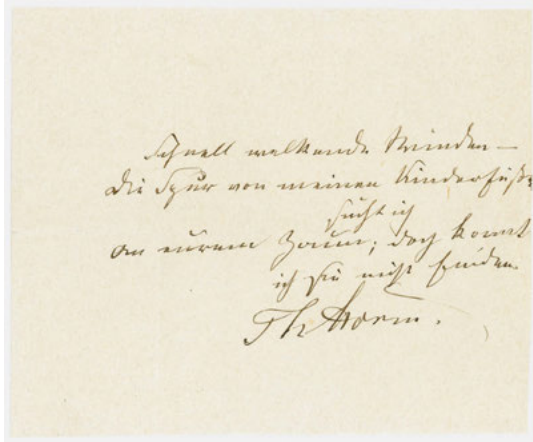 Schnell welkende Winden –
Die Spur von meinen Kinderfüß
sucht ich
an eurem Zaun; doch konnt
ich sie nicht finden.
Th Storm.